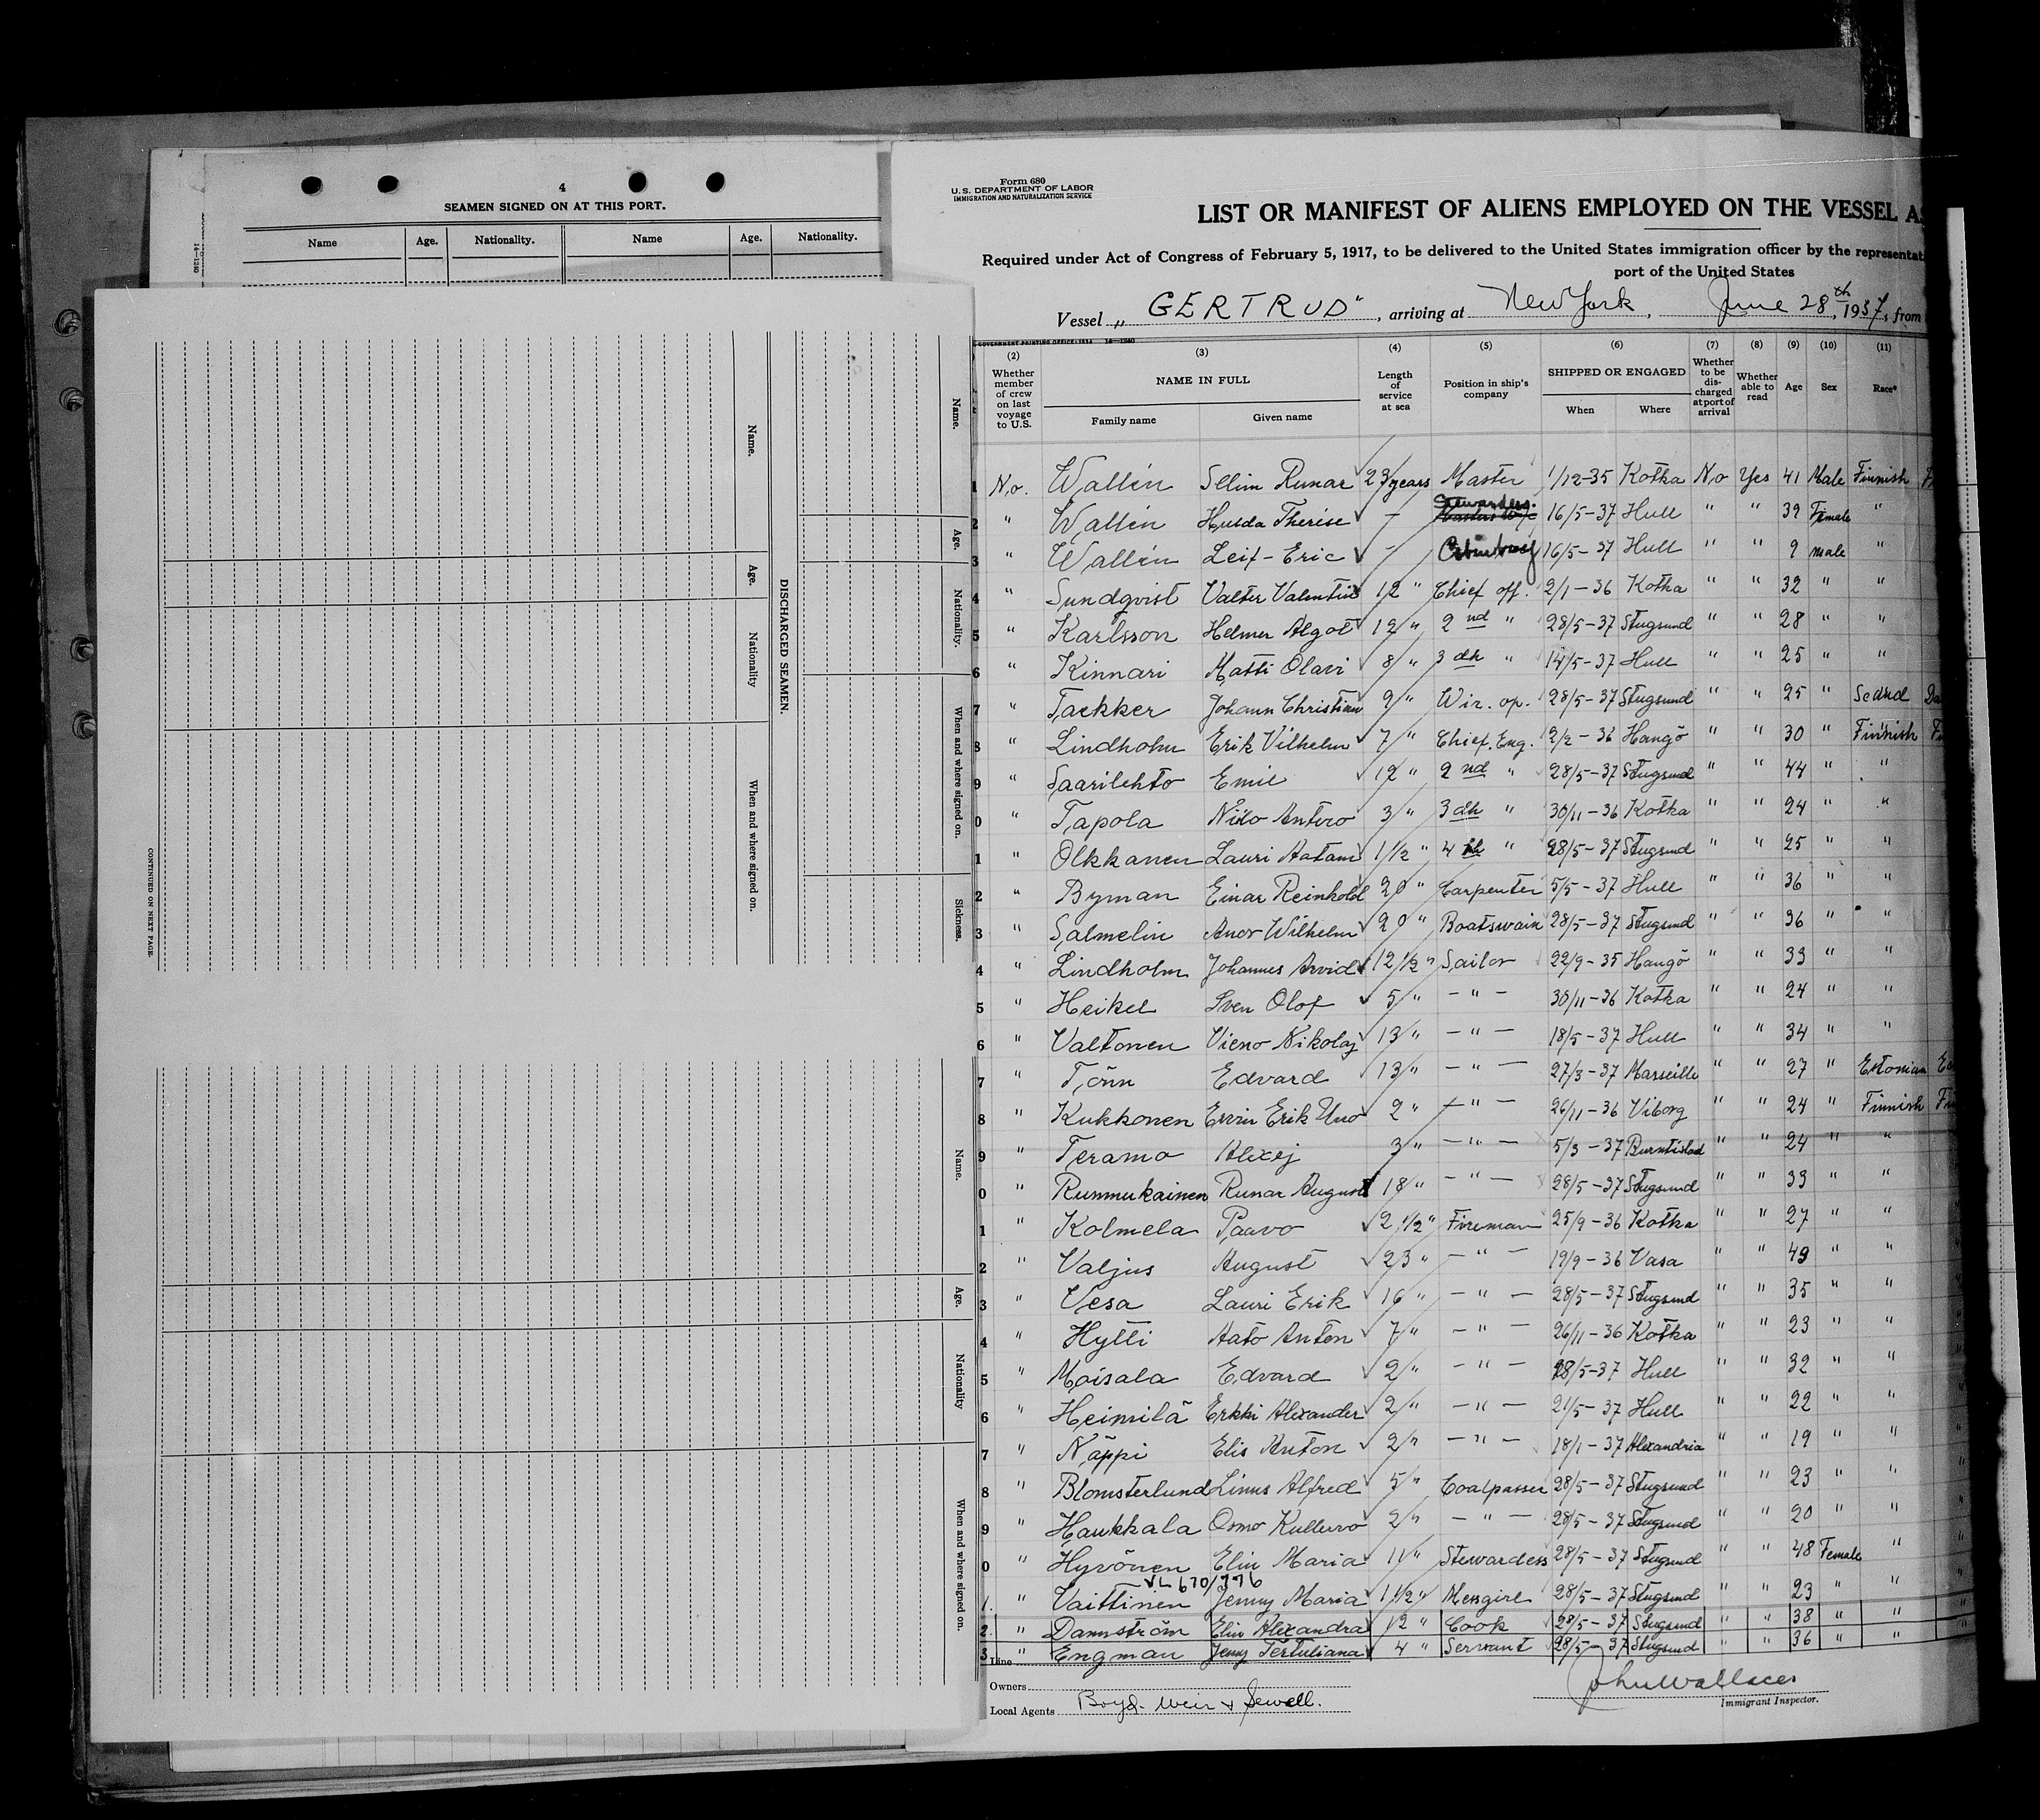 4
SEAMEN SIGNED ON AT THIS PORT.
Name Age. Nationality. Name Age. Nationality.
Name. Age. Nationality. When and where signed on. Sickness.
DISCHARGED SEAMEN.
Name. Age. Nationality When and where signed on.
CONTINUED ON NEXT PAGE.
Name. Age. Nationality When and where signed on.
Form 680
U. S. DEPARTMENT OF LABOR
IMMIGRATION AND NATURALIZATION SERVICE
LIST OR MANIFEST OF ALIENS EMPLOYED ON THE VESSEL AS
Required under Act of Congress of February 5, 1917, to be delivered to the United States immigration officer by the representat
port of the United States
Vessel „ GERTRUD", arriving at New York, June 28th, 1937, from
(2) (3) (4) (5) (6) (7) (8) (9) (10) (11)
Whether member of crew on last voyage to U.S. NAME IN FULL Family name Given name Length of service at sea Position in ship's company SHIPPED OR ENGAGED When Where Whether to be discharged at port of arrival Whether able to read Age Sex Race*
1 No. Wallén Selim Runar 23 years Master 1/12-35 Kotka No Yes 41 Male Finnish
2 " Wallén Hulda Therese - Stewardess. 16/5-37 Hull " " 39 Female "
3 " Wallén Leif-Eric - 16/5-37 Hull " " 9 male "
4 " Sundqvist Valter Valentin 12 " Chief off. 2/1-36 Kotka " " 32 " "
5 " Karlsson Helmer Algot 12 " 2nd " 28/5-37 Stugsund " " 28 " "
6 " Kinnari Matti Olavi 8 " 3dh " 14/5-37 Hull " " 25 " "
7 " Taekker Johann Christian 9 " Wir. op. 28/5-37 Stugsund " " 25 " Scand
8 " Lindholm Erik Vilhelm 7 " Chief. Eng. 2/2-36 Hangö " " 30 " Finnish
9 " Saarilehto Emil 12 " 2nd " 28/5-37 Stugsund " " 44 " "
0 " Tapola Niilo Antero 3 " 3dh " 30/11-36 Kotka " " 24 " "
1 " Olkkanen Lauri Aatami 1 1/2 " 4th " 28/5-37 Stugsund " " 25 " "
2 " Byman Einar Reinhold 20 " Carpenter 5/5-37 Hull " " 36 " "
3 " Salmelin Anor Wilhelm 20 " Boatswain 28/5-37 Stugsund " " 36 " "
4 " Lindholm Johannes Arvid 12 1/2 " Sailor 22/9-35 Hangö " " 33 " "
5 " Heikel Sven Olof 5 " - " - 30/11-36 Kotka " " 24 " "
6 " Valtonen Vieno Nikolaj 13 " - " - 18/5-37 Hull " " 34 " "
7 " Tönn Edvard 13 " - " - 27/3-37 Marseille " " 27 " Estonian
8 " Kukkonen Ervin Erik Uno 2 " - " - 26/11-36 Viborg " " 24 " Finnish
9 " Teramo Alexej 3 " - " - 5/3-37 " " 24 " "
0 " Rummukainen Runar August 18 " - " - 28/5-37 Stugsund " " 33 " "
1 " Kolmela Paavo 2 1/2 " Fireman 25/9-36 Kotka " " 27 " "
2 " Valjus August 23 " - " - 19/9-36 Vasa " " 49 " "
3 " Vesa Lauri Erik 16 " - " - 28/5-37 Stugsund " " 35 " "
4 " Hytti Aato Anton 7 " - " - 26/11-36 Kotka " " 23 " "
5 " Moisala Edvard 2 " - " - 28/5-37 Hull " " 32 " "
6 " Heimilä Erkki Alexander 2 " - " - 21/5-37 Hull " " 22 " "
7 " Näppi Elis Anton 2 " - " - 18/1-37 Alexandria " " 19 " "
8 " Blomsterlund Linus Alfred 5 " Coalpasser 28/5-37 Stugsund " " 23 " "
9 " Haukkala Osmo Kullervo 2 " - " - 28/5-37 Stugsund " " 20 " "
0 " Hyvönen Elin Maria 11 " Stewardess 28/5-37 Stugsund " " 48 Female "
VL 670/776
1. " Vaittinen Jenny Maria 1 1/2 " Messgirl 28/5-37 Stugsund " " 23 " "
2. " Dannström Elin Alexandra 12 " Cook 28/5-37 Stugsund " " 38 " "
3 " Engman Jenny Tertuliana 4 " Servant 28/5-37 Stugsund " " 36 " "
Line
Owners
Local Agents Boyd. Weir & Sewell.
John Wallace
Immigrant Inspector.